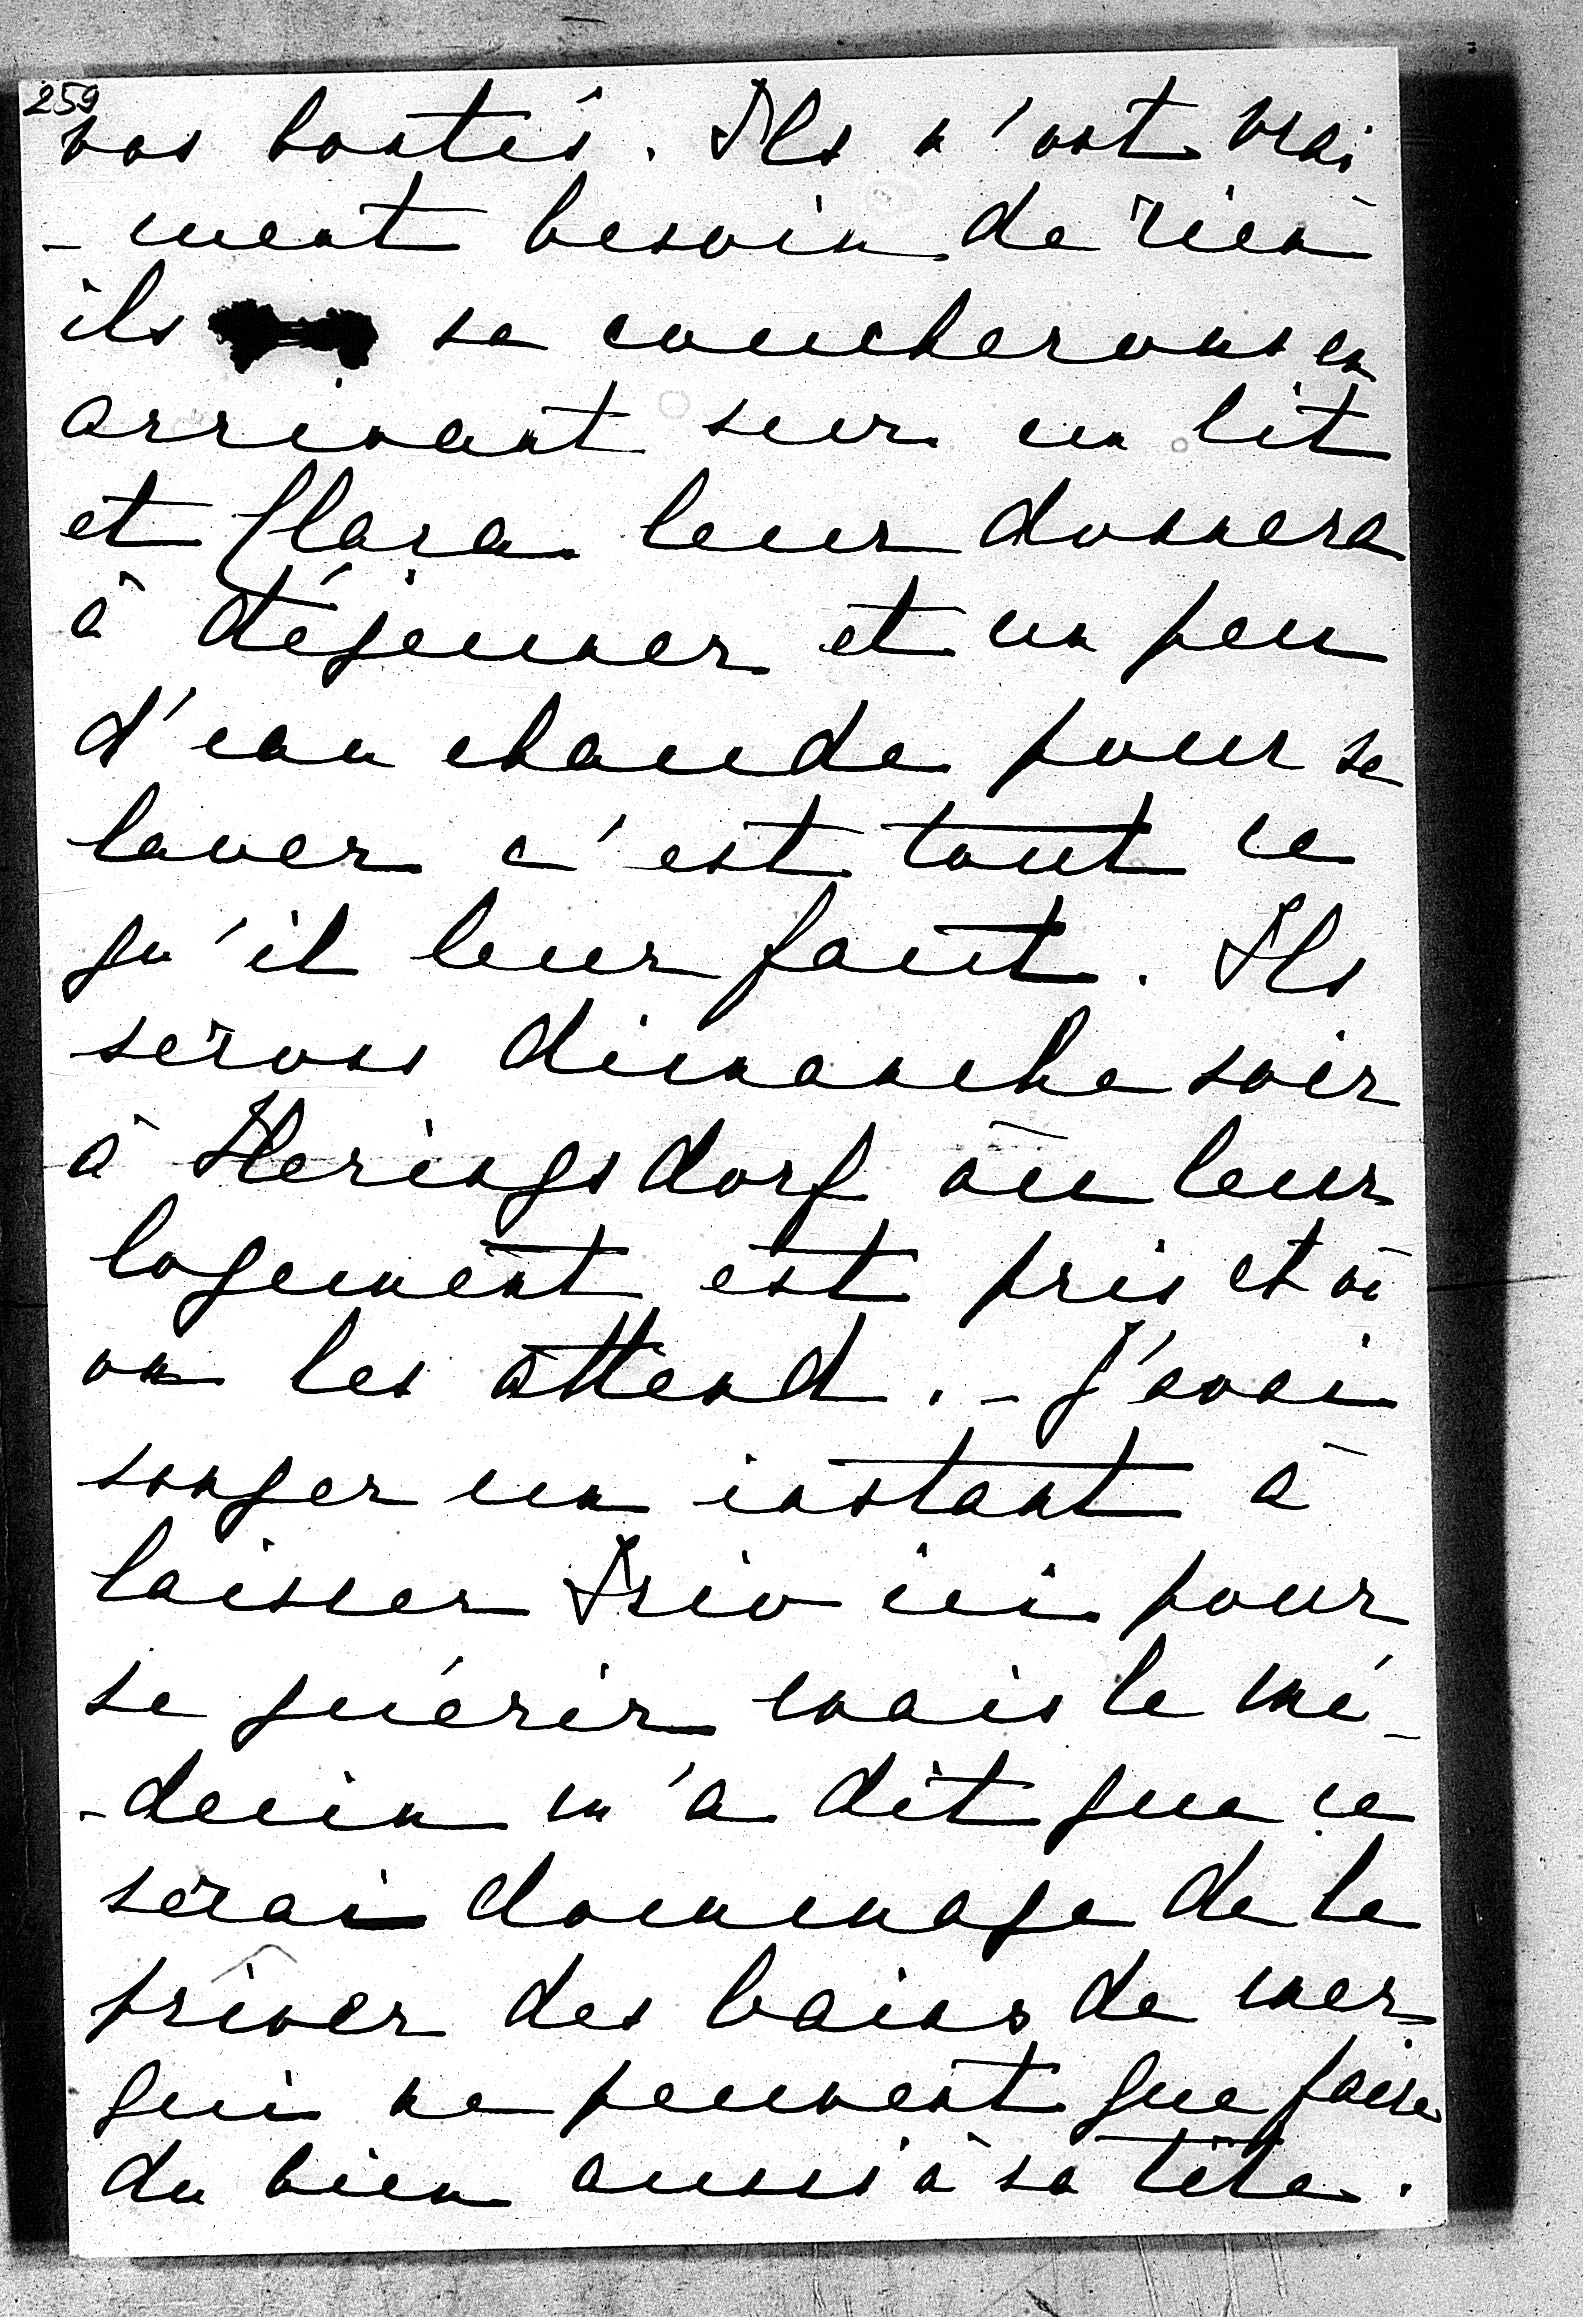 259
vos bontés. Ils n'ont vrai
- ment besoin de rien
ils se coucherons en
arrivant sur un lit
et Clara leur donnera
à déjeuner et un peu
d'eau chaude pour se
laver c'est tout ce
qu'il leur faut. Ils
serons dimanche soir
à Heringsdorf où leur
logement est pris et où
on les attend. - J'avai
songer un instant à
laisser ici pour
se guérir mais le mé-
-decin m'a dit que ce
serai dommage de le
priver des bains de mer
qui ne peuvent que faire
du bien aussi à sa tête.